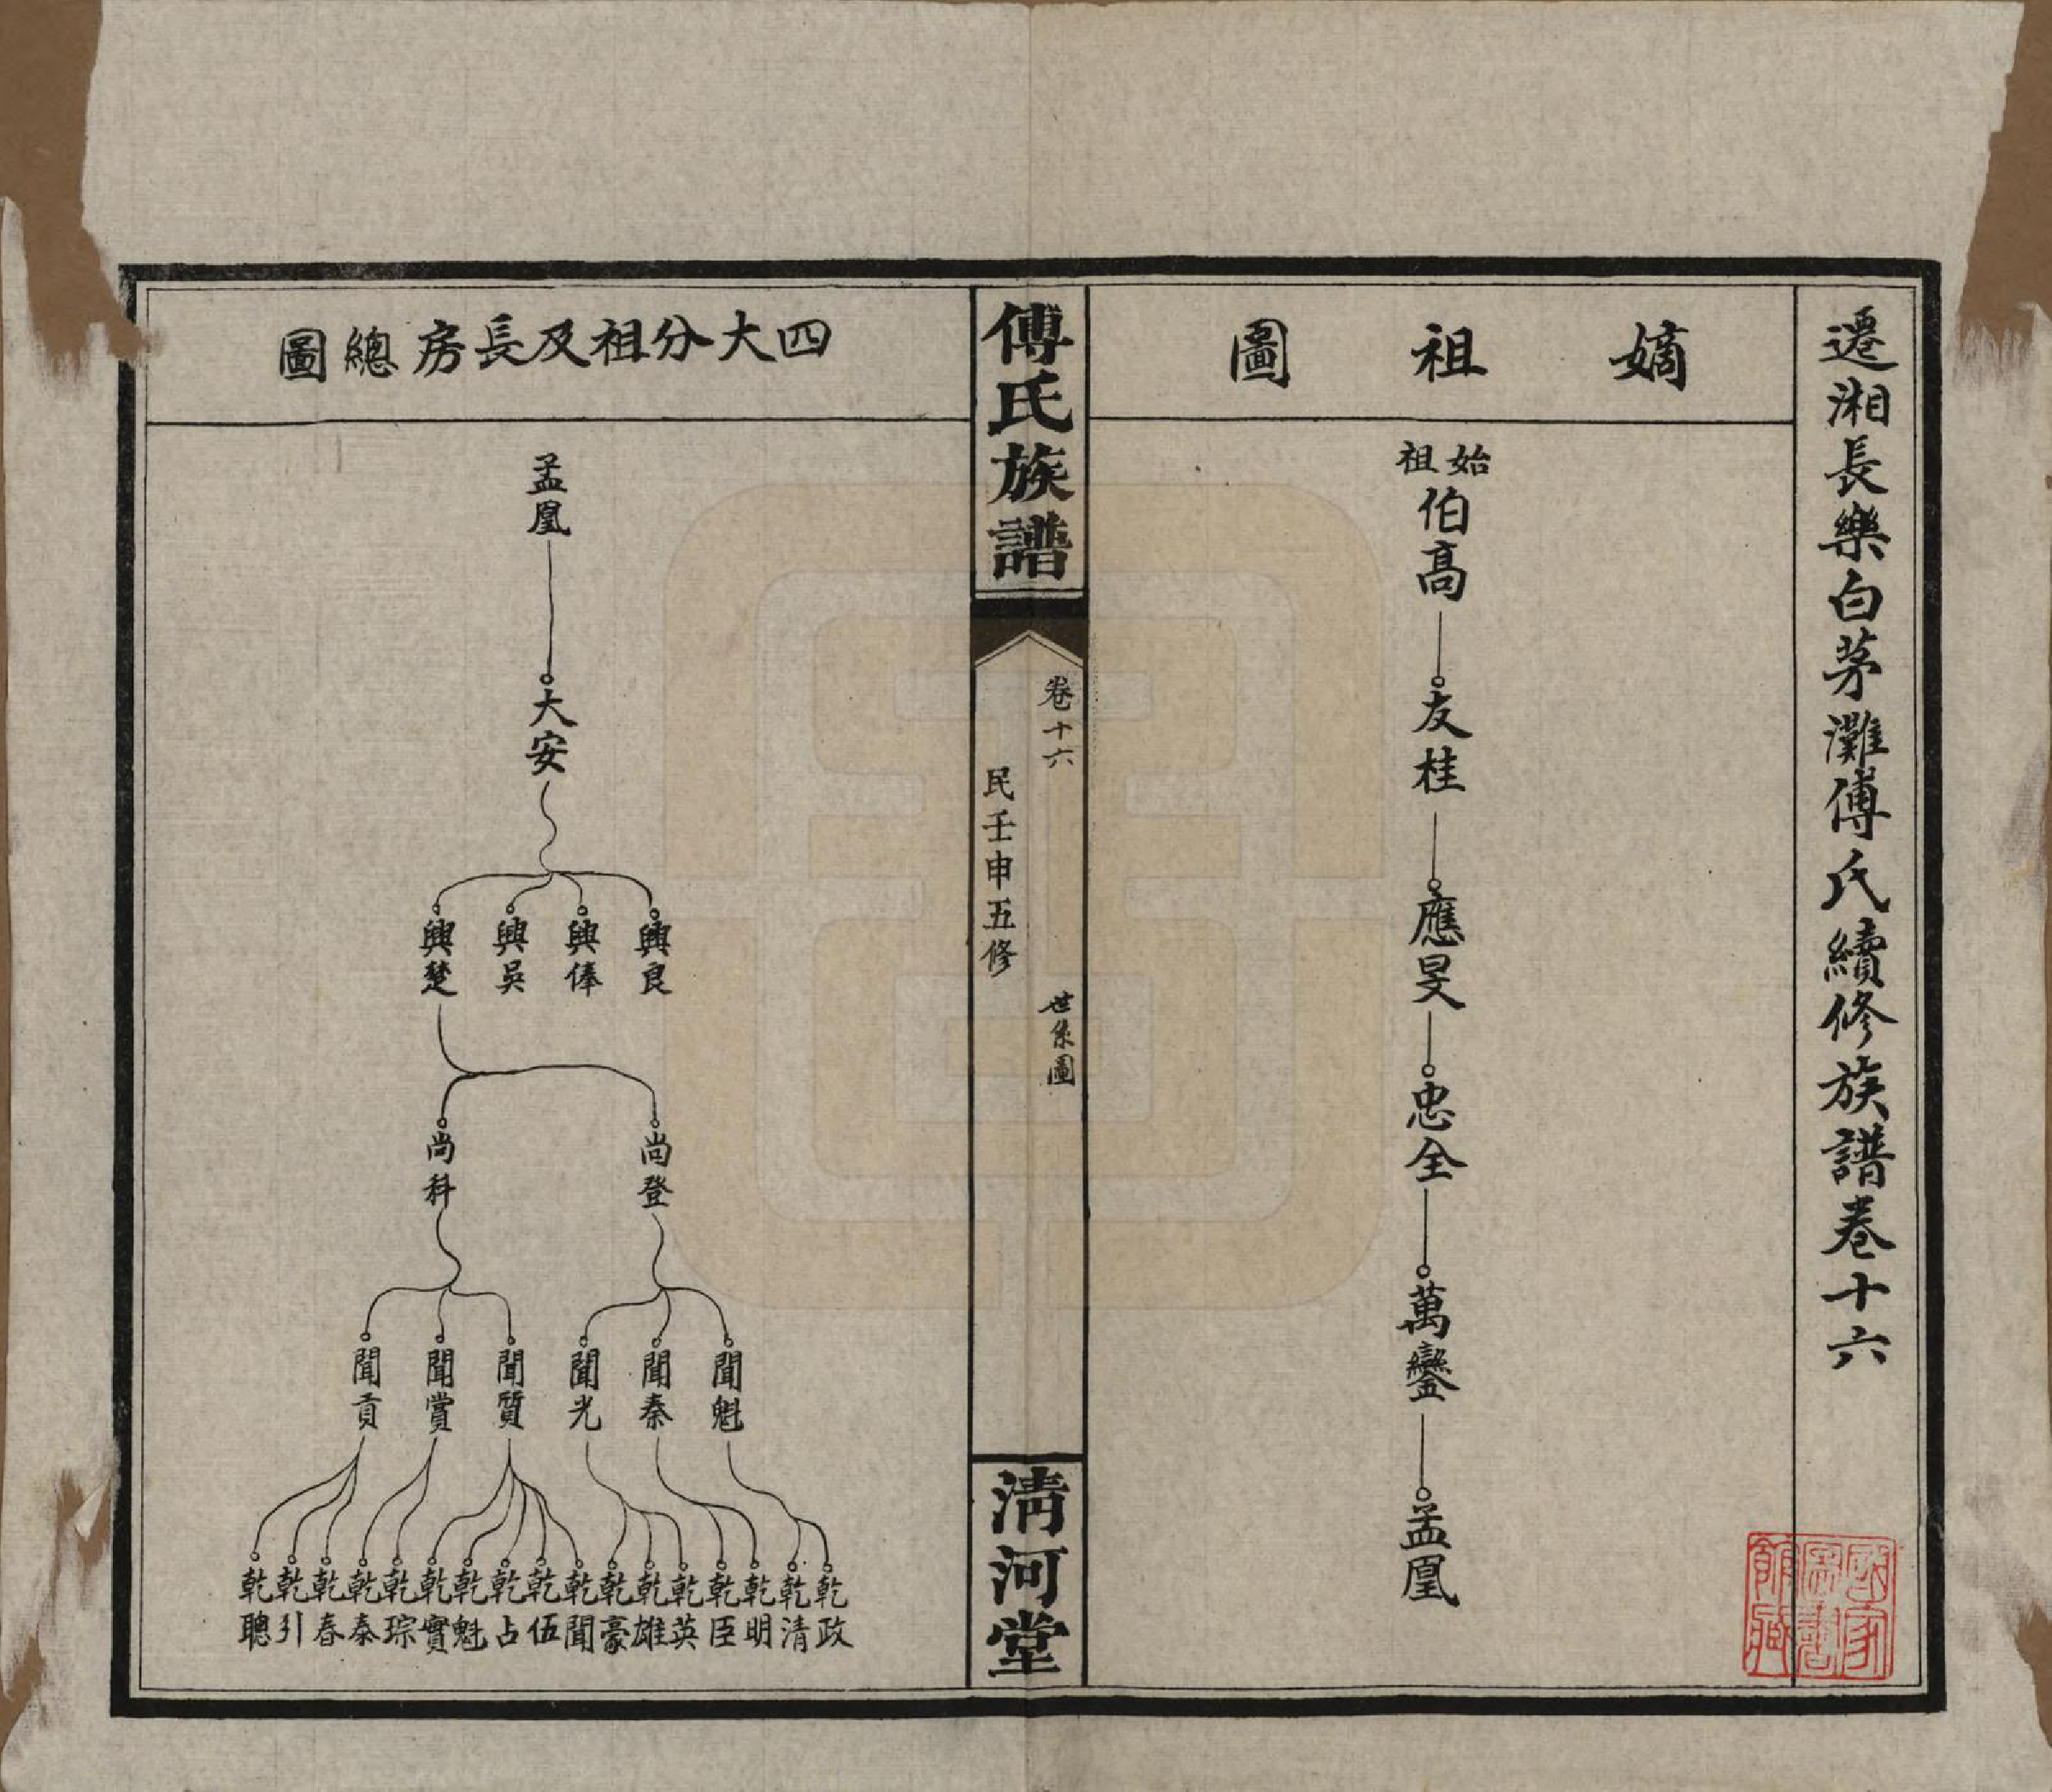 遷湘長樂白茅灘傅氏續修族譜卷十六
嫡祖圖
始祖
伯高
友桂
應旻
忠全
萬鑾
孟凰
傅氏族譜
卷十六
世系圖
民壬申五修
淸河堂
四大分祖及長房總圖
孟凰
大安
興良
興俸
興吳
興楚
尚登
尚科
聞魁
聞秦
聞光
聞質
聞賞
聞貢
乾政
乾清
乾明
乾臣
乾英
乾雄
乾豪
乾聞
乾伍
乾占
乾魁
乾實
乾琮
乾秦
乾春
乾引
乾聰
國家圖書館藏